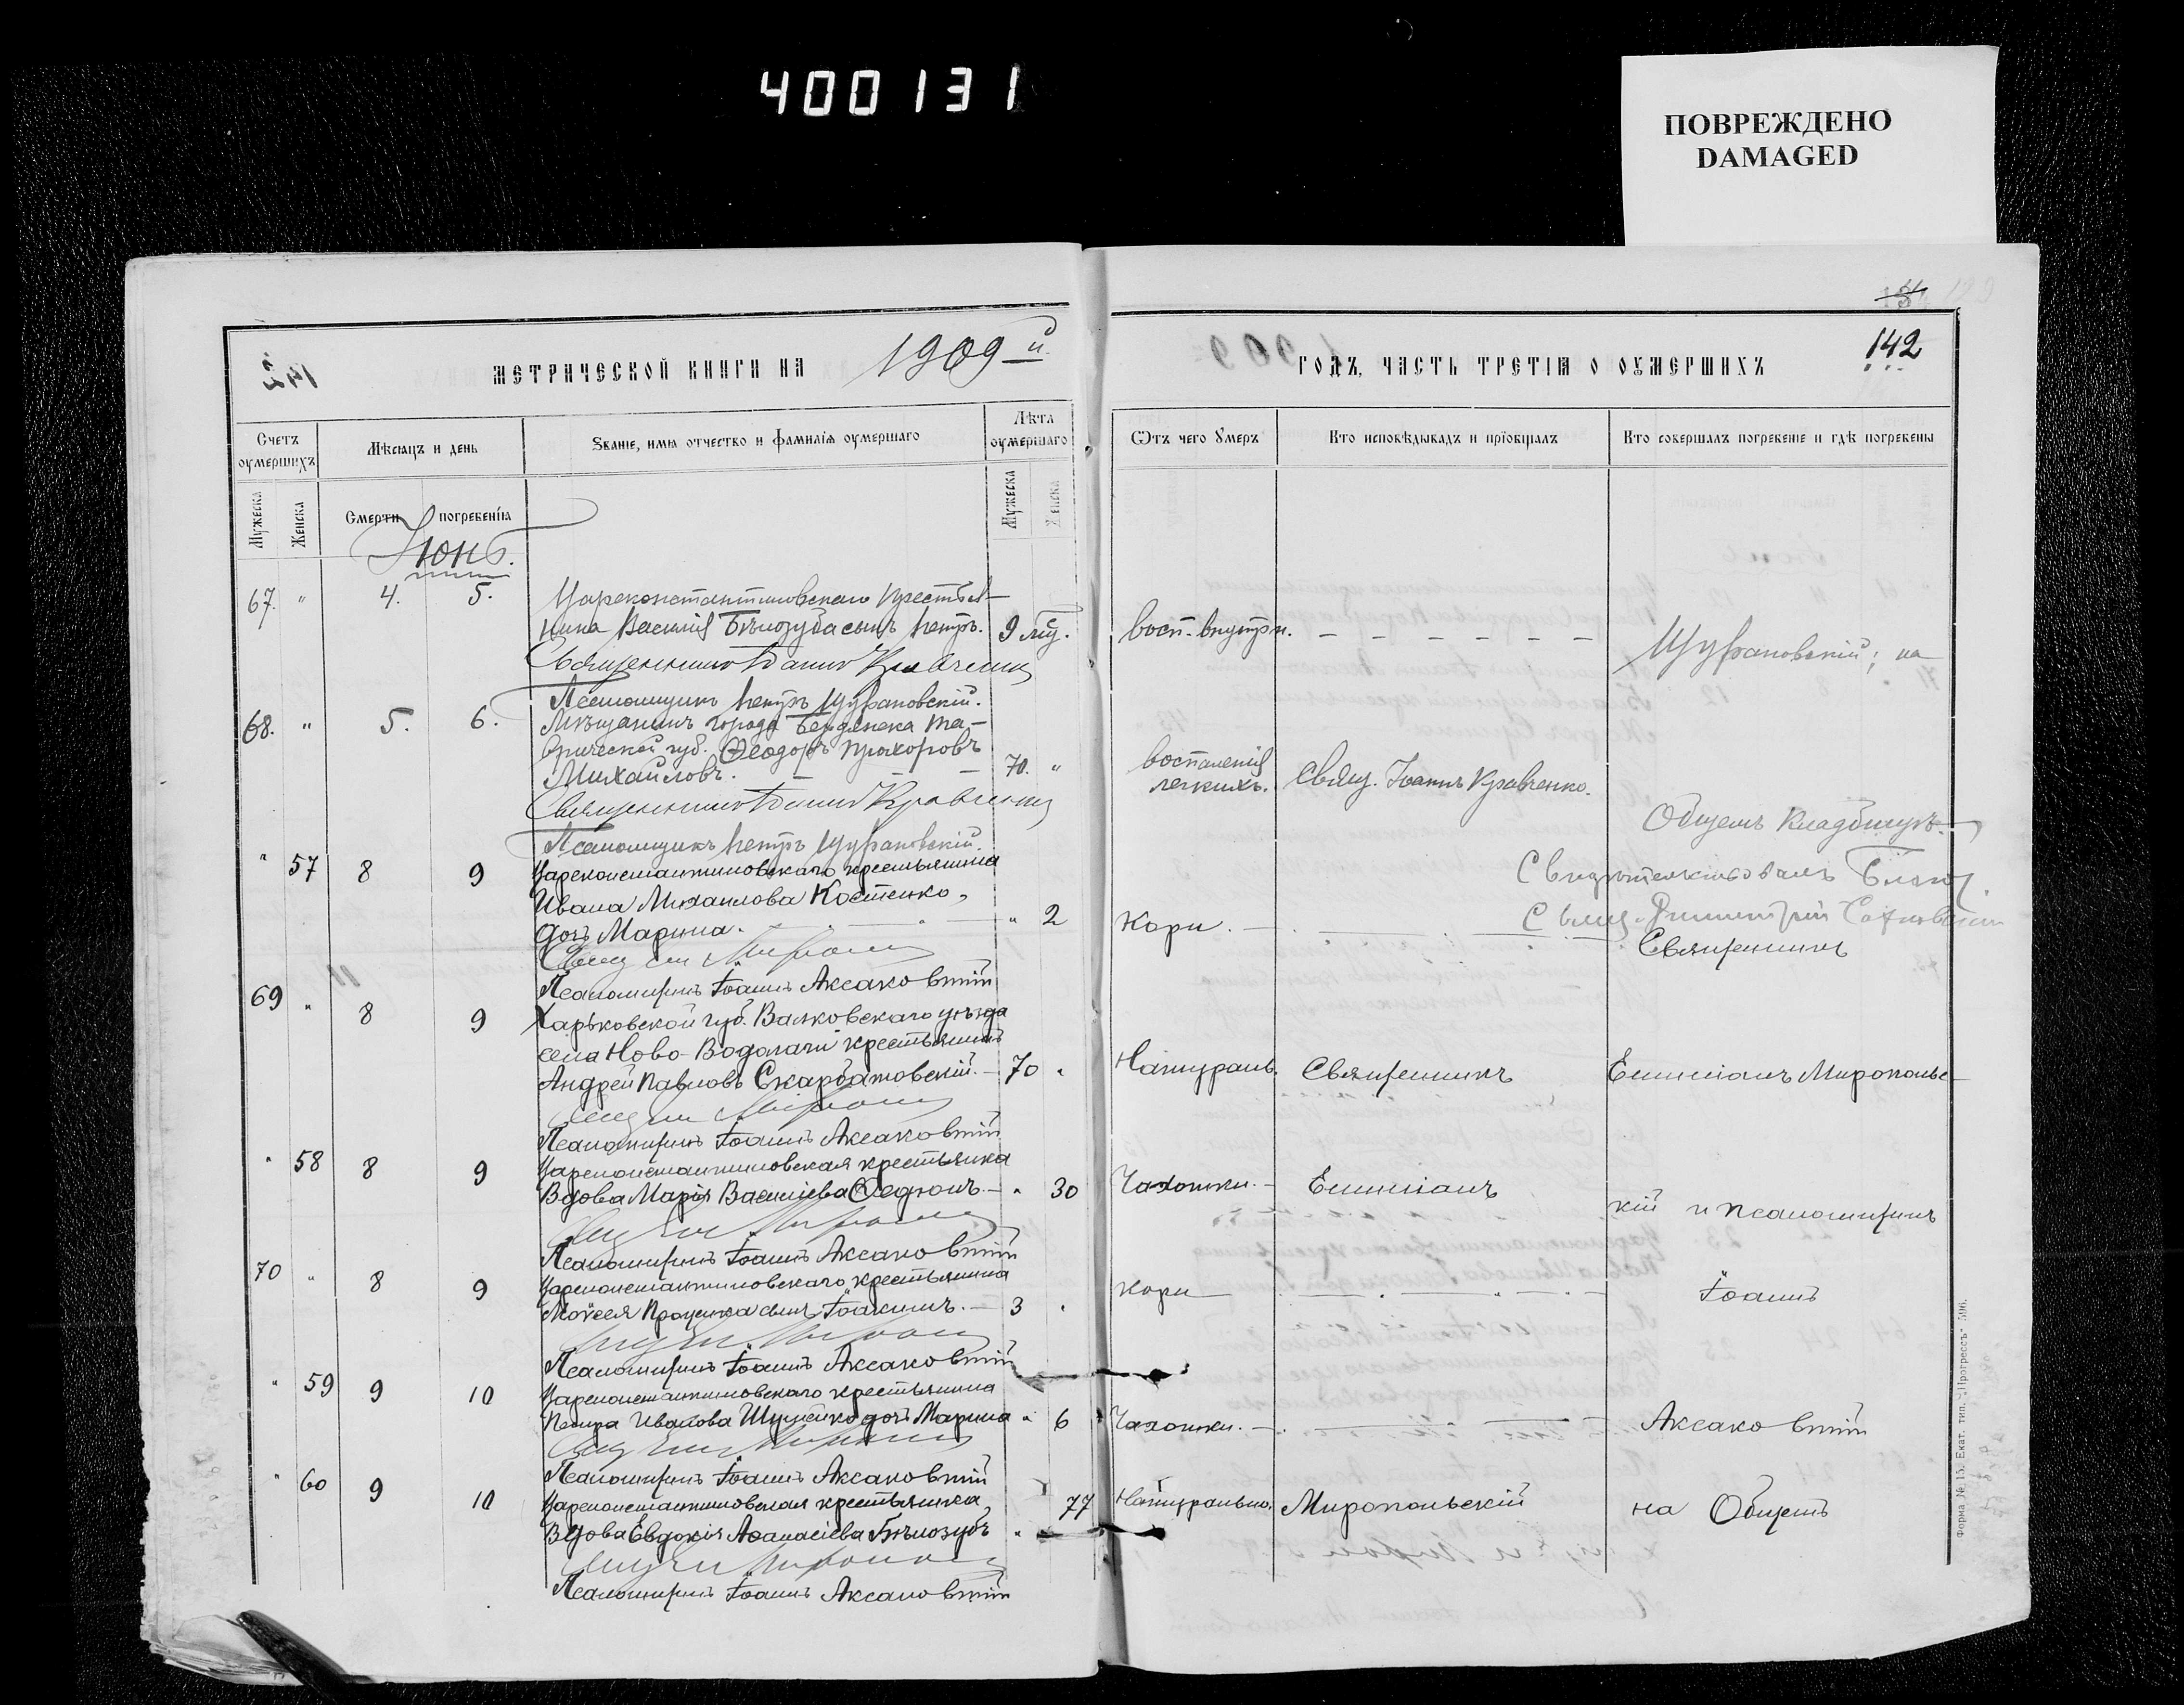 400131
ПОВРЕЖДЕНО
DAMAGED
142
МЕТРИЧЕСКОЙ КНИГИ НА 1909 й
ГОДЪ, ЧАСТЬ ТРЕТІЯ О ОУМЕРШИХЪ
142
Счетъ оумершихъ
Мѣсяцъ и день
Званіе, имя отчество и фамилія оумершаго
Лѣта оумершаго
Отъ чего умеръ
Кто исповѣдывалъ и пріобщалъ
Кто совершалъ погребеніе и гдѣ погребены
Мужеска
Женска
Смерти
погребенія
Мужеска
Женска
Іюнь.
67. " 4. 5. Цареконстантиновскаго крестья-
нина Василія Бѣлозуба сынъ Петръ. 9 мѣс. восп. внутрн. - - - - - -
Щурановскій; на
Священникъ Іоаннъ Кравченко
Псаломщикъ Петръ Щурановскій.
68. " 5. 6. Мѣщанинъ города Бердянска Та-
врической губ. Ѳеодоръ Прохоровъ
Михайловъ. - - - 70. " воспаленія легкихъ. Свящ. Іоаннъ Кравченко.
Священникъ Іоаннъ Кравченко
Общемъ кладбищѣ.
Псаломщикъ Петръ Щурановскій.
" 57 8 9 Цареконстантиновскаго крестьянина
Ивана Михаилова Костенко,
дочь Марина. " 2 Кори.
Свидѣтельствовалъ Благ.
Свящ. Димитрій
Священникъ
Псаломщикъ Іоаннъ Аксаковскій
69 " 8 9 Харьковской губ. Валковскаго уѣзда
села Ново-Водолаги крестьянинъ
Андрей Павловъ Скарбатовскій. - 70 " Натуральн. Священникъ Емиліанъ Миропольс-
Псаломщикъ Іоаннъ Аксаковскій
" 58 8 9 Цареконстантиновская крестьянка
Вдова Марія Василіева - " 30 Чахотки. - Емиліанъ
кій и псаломщикъ
Псаломщикъ Іоаннъ Аксаковскій
70 " 8 9 Цареконстантиновскаго крестьянина
Моѵсея Проценка сынъ Іоакимъ. - 3 " кори
Іоаннъ
Псаломщикъ Іоаннъ Аксаковскій
" 59 9 10 Цареконстантиновскаго крестьянина
Петра Иванова дочь Марина " 6 Чахотки. - Аксаковскій
Псаломщикъ Іоаннъ Аксаковскій
" 60 9 10 Цареконстантиновская крестьянка,
Вдова Евдокія Аѳанасіева Бѣлозубъ " 77 Натурально. Миропольскій на Общемъ
Псаломщикъ Іоаннъ Аксаковскій
Форма № 15. Екат. тип. „Прогрессъ"